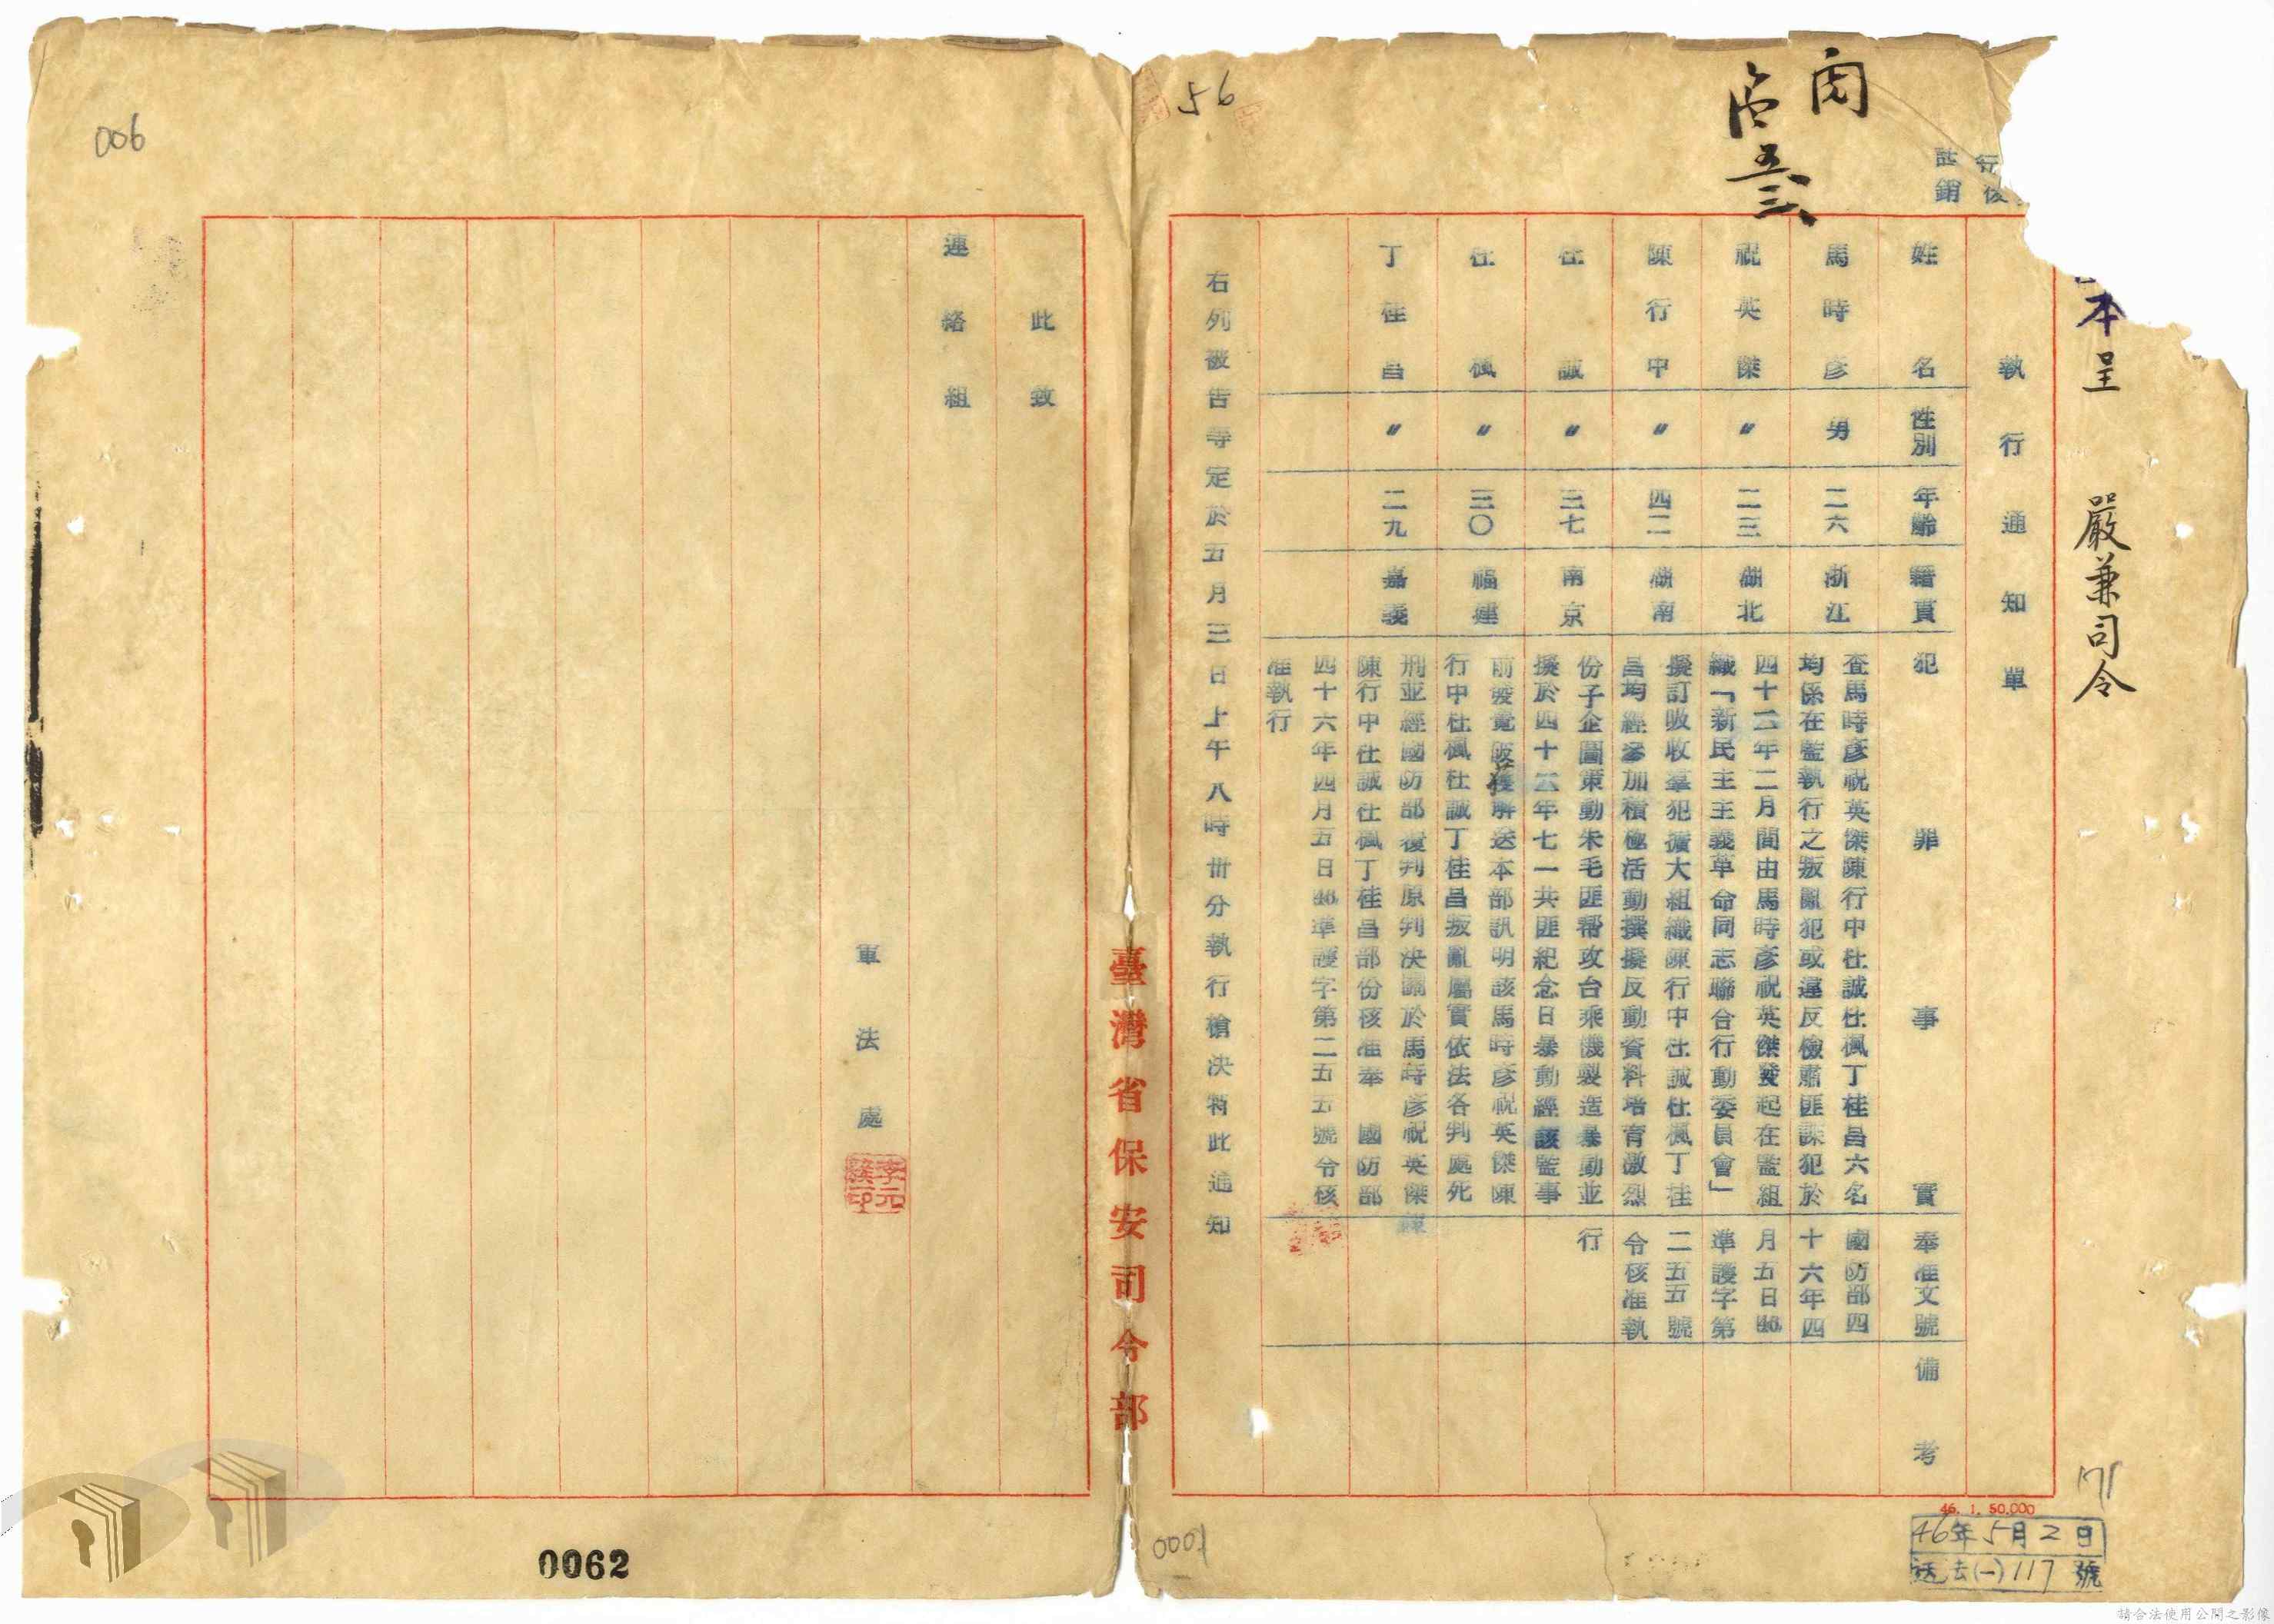 56
本呈 嚴兼司令
行後
註銷
執行通知單
姓名 性別 年齡 籍貫 犯罪事實 奉准文號 備考
馬時彥 男 二六 浙江
祝英傑 〃 二三 湖北
陳行中 〃 四二 湖南
杜誠 〃 三七 南京
杜楓 〃 三〇 福建
丁桂昌 〃 二九 嘉義
查馬時彥祝英傑陳行中杜誠杜楓丁桂昌六名
均係在監執行之叛亂犯或違反檢肅匪諜犯於
四十三年二月間由馬時彥祝英傑發起在監組
織「新民主主義革命同志聯合行動委員會」
擬訂吸收羣犯擴大組織陳行中杜誠杜楓丁桂
昌均經參加積極活動撰擬反動資料培育激烈
份子企圖策動朱毛匪幫攻台乘機製造暴動並
擬於四十三年七一共匪紀念日暴動經該監事
前發覺破獲解送本部訊明該馬時彥祝英傑陳
行中杜楓杜誠丁桂昌叛亂屬實依法各判處死
刑並經國防部復判原判決關於馬時彥祝英傑
陳行中杜誠杜楓丁桂昌部份核准奉 國防部
四十六年四月五日46準護字第二五五號令核
准執行
國防部四
十六年四
月五日46
準護字第
二五五號
令核准執
行
右列被告等定於五月三日上午八時卅分執行槍決特此通知
臺灣省保安司令部
此致
連絡組
軍法處
006
0062
0001
171
46. 1. 50,000
46年5月2日
(一)117號
請合法使用公開之影像